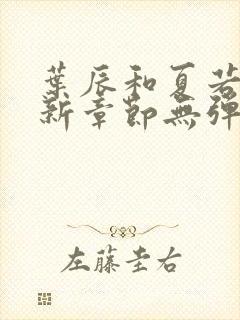 葉辰和夏若
新章節無彈
左藤圭右